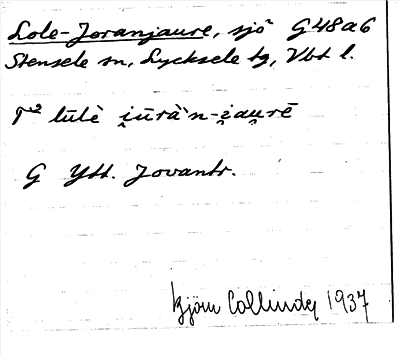 Lole-Joranjaure, sjö G48a6
Stensele sn, Lycksele tg, Vbt l.
T² lūlè i̯ūrà'n-i̯au̯rē
G Ytt. Jovantr.
Björn Collinder 1937